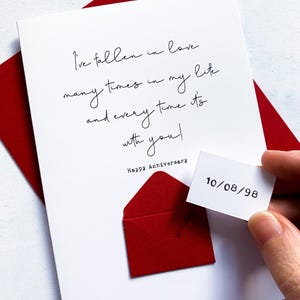 I've fallen in love
many times in my life
and every time it's
with you!
Happy Anniversary
10/08/98